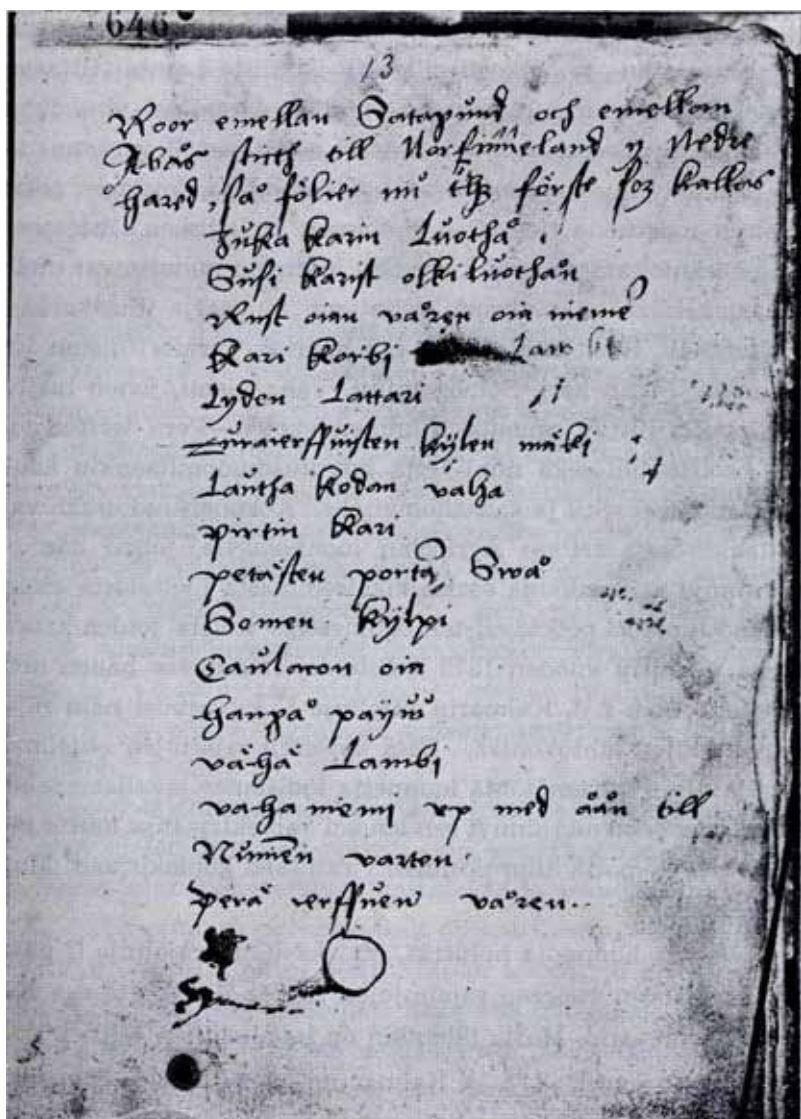 646
13
Roor emellan Satapund och emellom
Abås sticht till Norfinneland y Nedre
hared, så fölier nu the förste som kallas
Juka karin Luotha
Susi karist olki luothån
Rust oian våren oia niemē
Kari korbi
Lyden Lattari
kÿlen mäki
Lautha kodan valha
pirtin kari
petästen portā Swå
Somen kÿlpi
Caulacon oia
hanpå paÿw
vähä Lambi
vaha niemi vp med åån till
Numēn varten
perä ierffuen våren